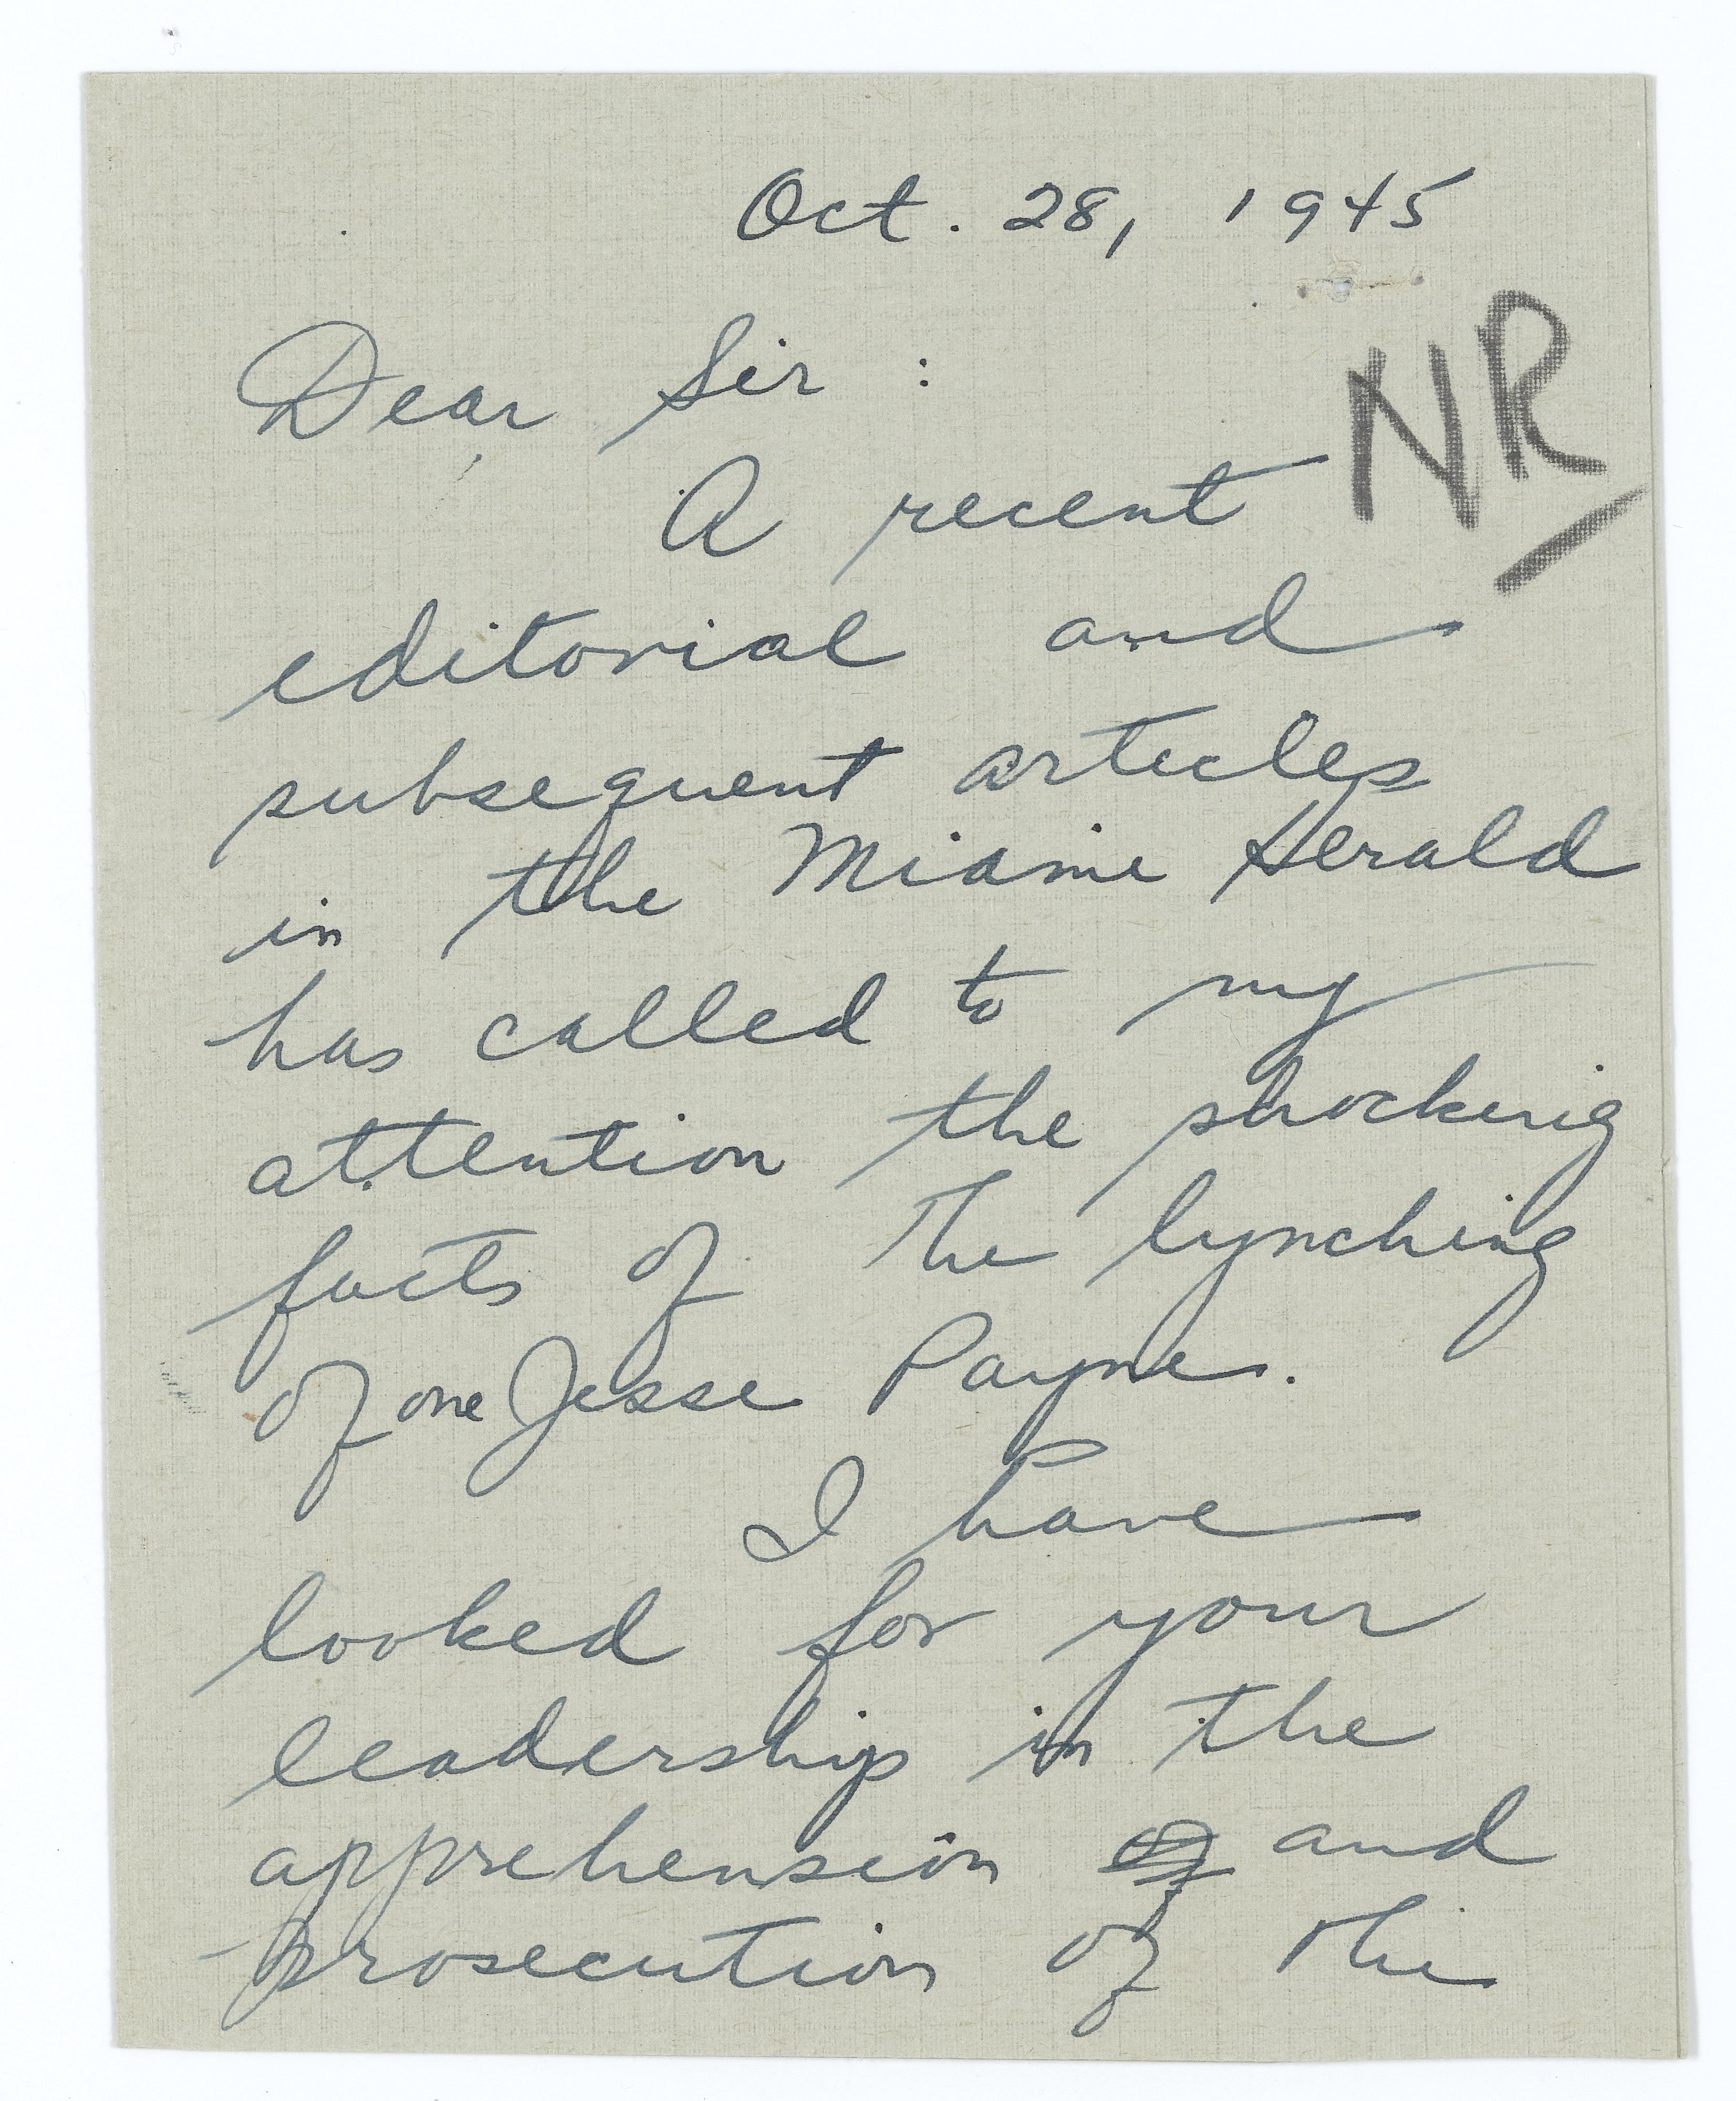 Oct. 28, 1945
NR
Dear Sir :
A recent
editorial and
subsequent articles
in the Miami Herald
has called to my
attention the shocking
facts of the lynching
of one Jesse Payne.
I have
looked for your
leadership in the
apprehension of and
prosecution of the